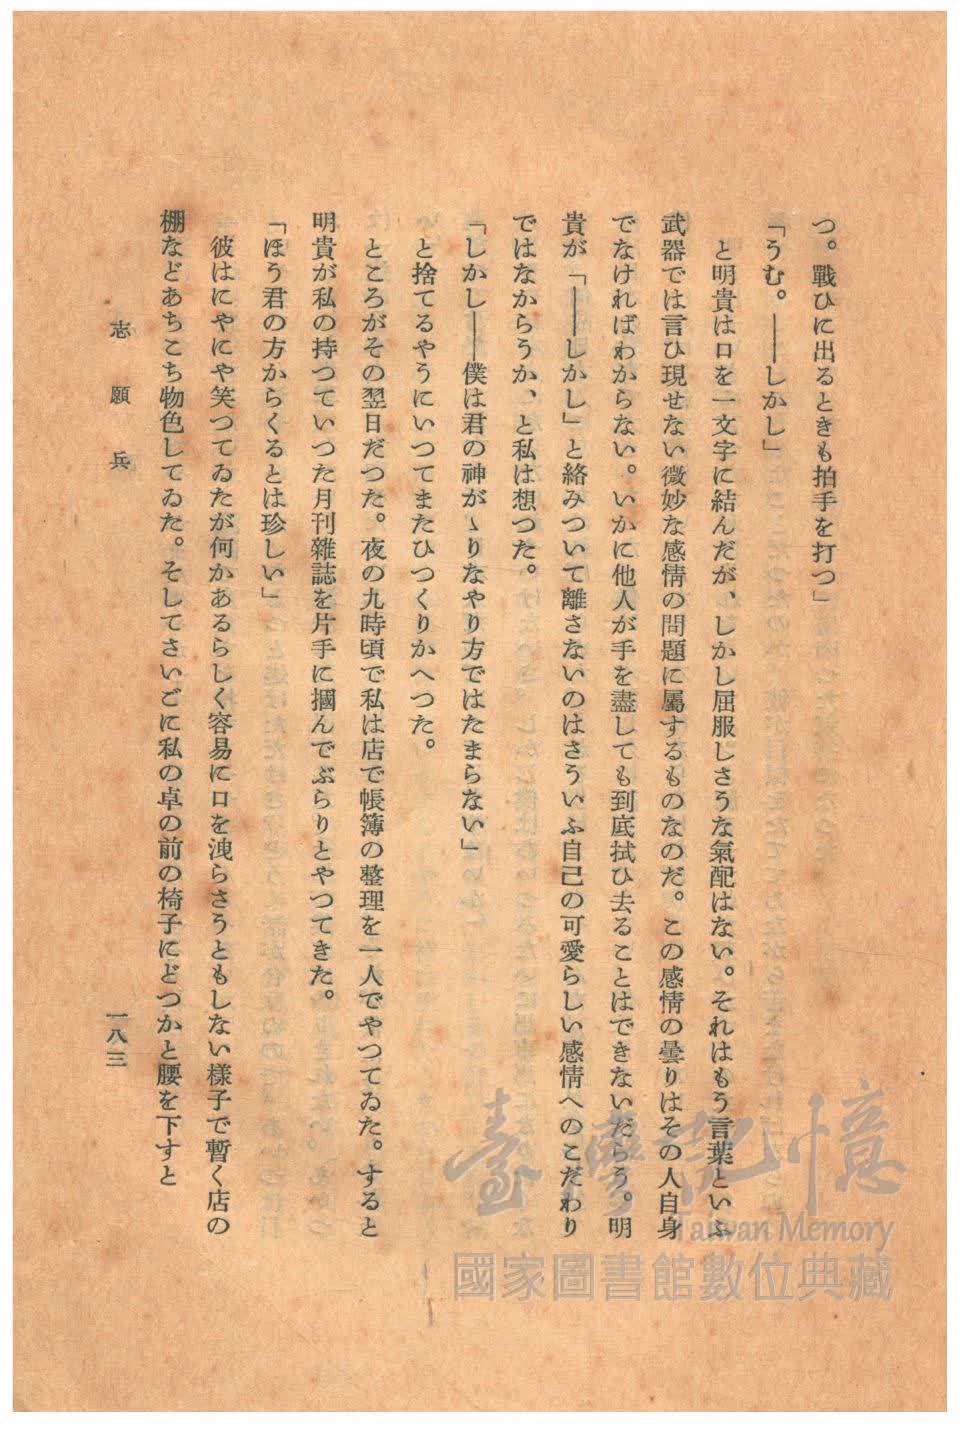 つ。戰ひに出るときも拍手を打つ」
「うむ。――しかし」
と明貴は口を一文字に結んだが、しかし屈服しさうな氣配はない。それはもう言葉といふ
武器では言ひ現せない微妙な感情の問題に屬するものなのだ。この感情の曇りはその人自身
でなければわからない。いかに他人が手を盡しても到底拭ひ去ることはできないだらう。明
貴が「――しかし」と絡みついて離さないのはさういふ自己の可愛らしい感情へのこだわり
ではなからうか、と私は想つた。
「しかし――僕は君の神がゝりなやり方ではたまらない」
と捨てるやうにいつてまたひつくりかへつた。
ところがその翌日だつた。夜の九時頃で私は店で帳簿の整理を一人でやつてゐた。すると
明貴が私の持つていつた月刊雜誌を片手に摑んでぶらりとやつてきた。
「ほう君の方からくるとは珍しい」
彼はにやにや笑つてゐたが何かあるらしく容易に口を洩らさうともしない樣子で暫く店の
棚などあちこち物色してゐた。そしてさいごに私の卓の前の椅子にどつかと腰を下すと
志願兵
一八三
臺灣記憶
Taiwan Memory
國家圖書館數位典藏